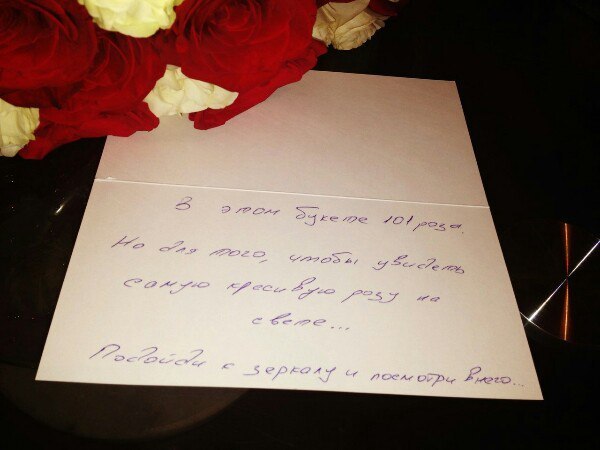 В этом букете 101 роза.
Но для того, чтобы увидеть
самую красивую розу на
свете...
Подойди к зеркалу и посмотри в него...